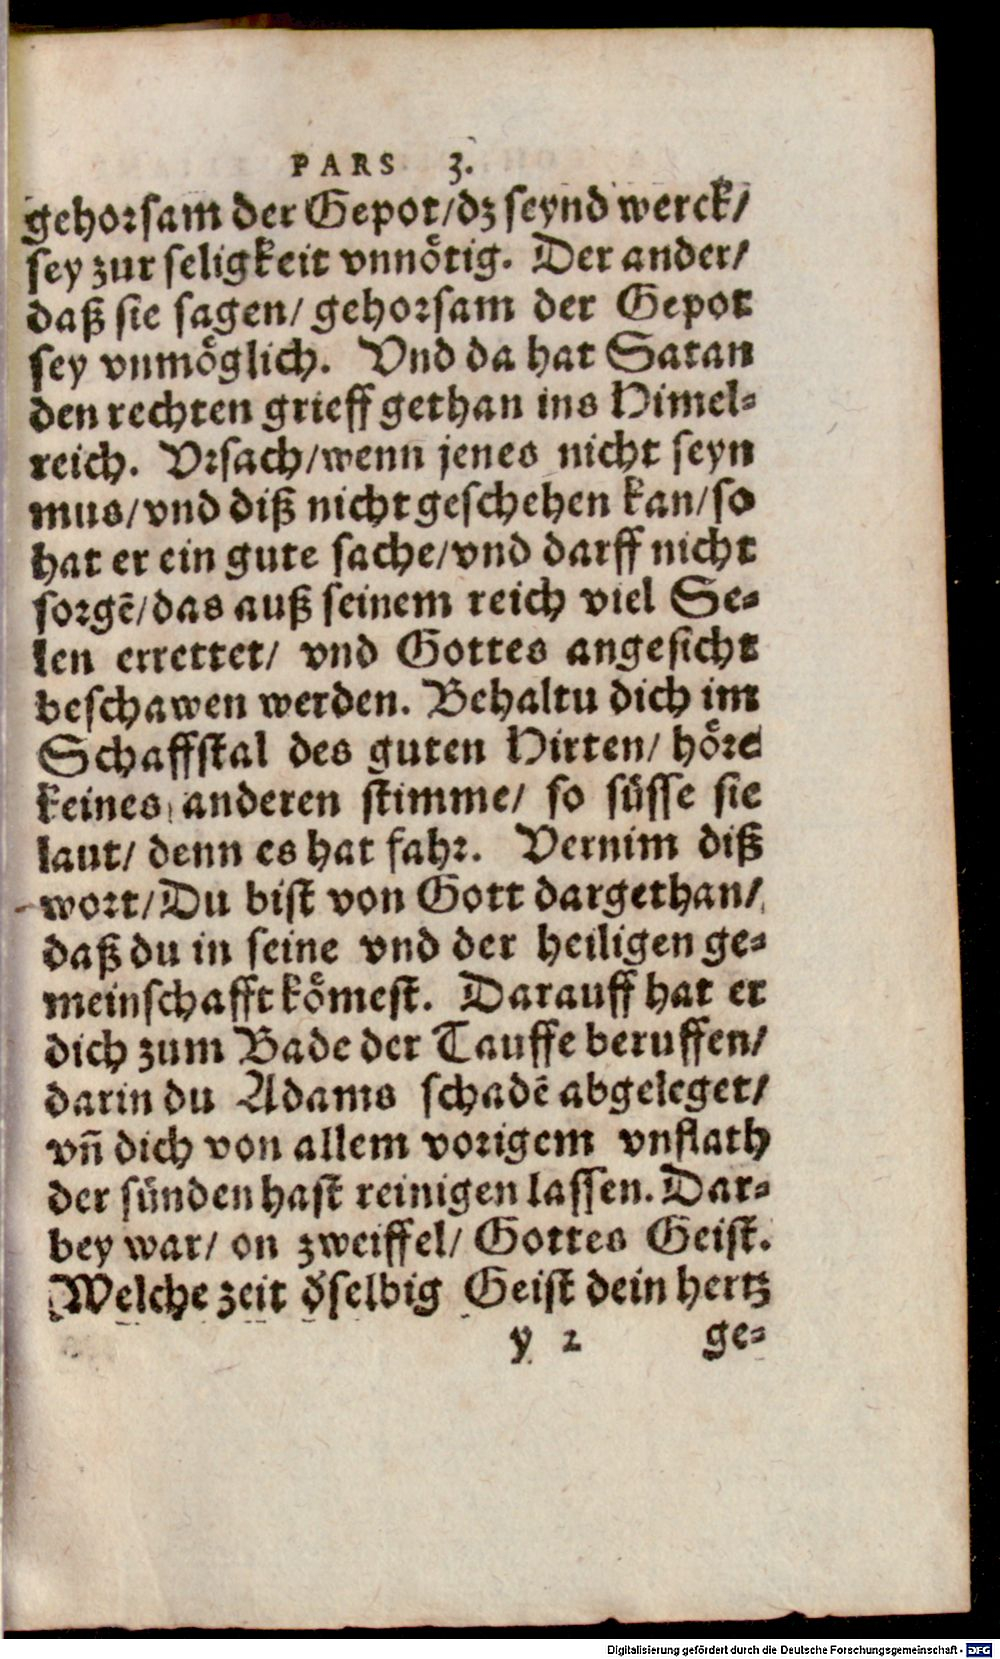 PARS 3.
gehorsam der Gepot/dz seynd werck/
sey zur seligkeit vnnötig. Der ander/
daß sie sagen/ gehorsam der Gepot
sey vnmöglich. Vnd da hat Satan
den rechten grieff gethan ins Himel-
reich. Vrsach/wenn jenes nicht seyn
mus/vnd diß nicht geschehen kan/so
hat er ein gute sache/vnd darff nicht
sorgē/das auß seinem reich viel See-
len errettet/ vnd Gottes angesicht
beschawen werden. Behaltu dich im
Schaffstal des guten Hirten/ höre
keines anderen stimme/ so süsse sie
laut/ denn es hat fahr. Vernim diß
wort/Du bist von Gott dargethan/
daß du in seine vnd der heiligen ge-
meinschafft kömest. Darauff hat er
dich zum Bade der Tauffe beruffen/
darin du Adams schadē abgeleget/
vñ dich von allem vorigem vnflath
der sünden hast reinigen lassen. Dar-
bey war/ on zweiffel/ Gottes Geist.
Welche zeit d̕selbig Geist dein hertz
y 2 ge-
Digitalisierung gefördert durch die Deutsche Forschungsgemeinschaft - DFG